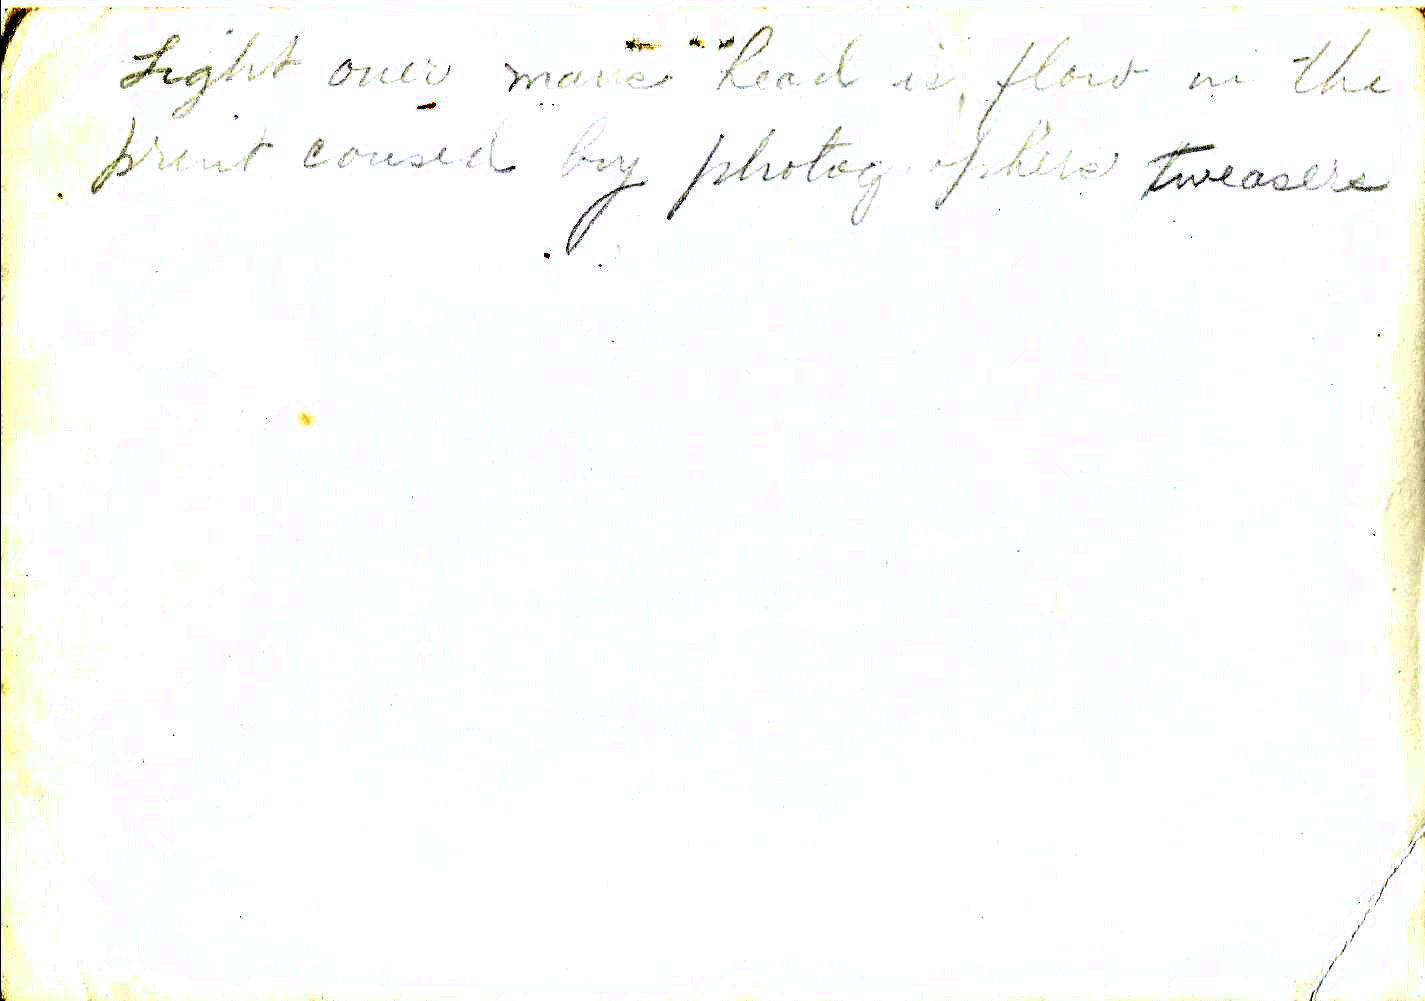 Light over mans head is flow in the
print coused by photographers tweasers